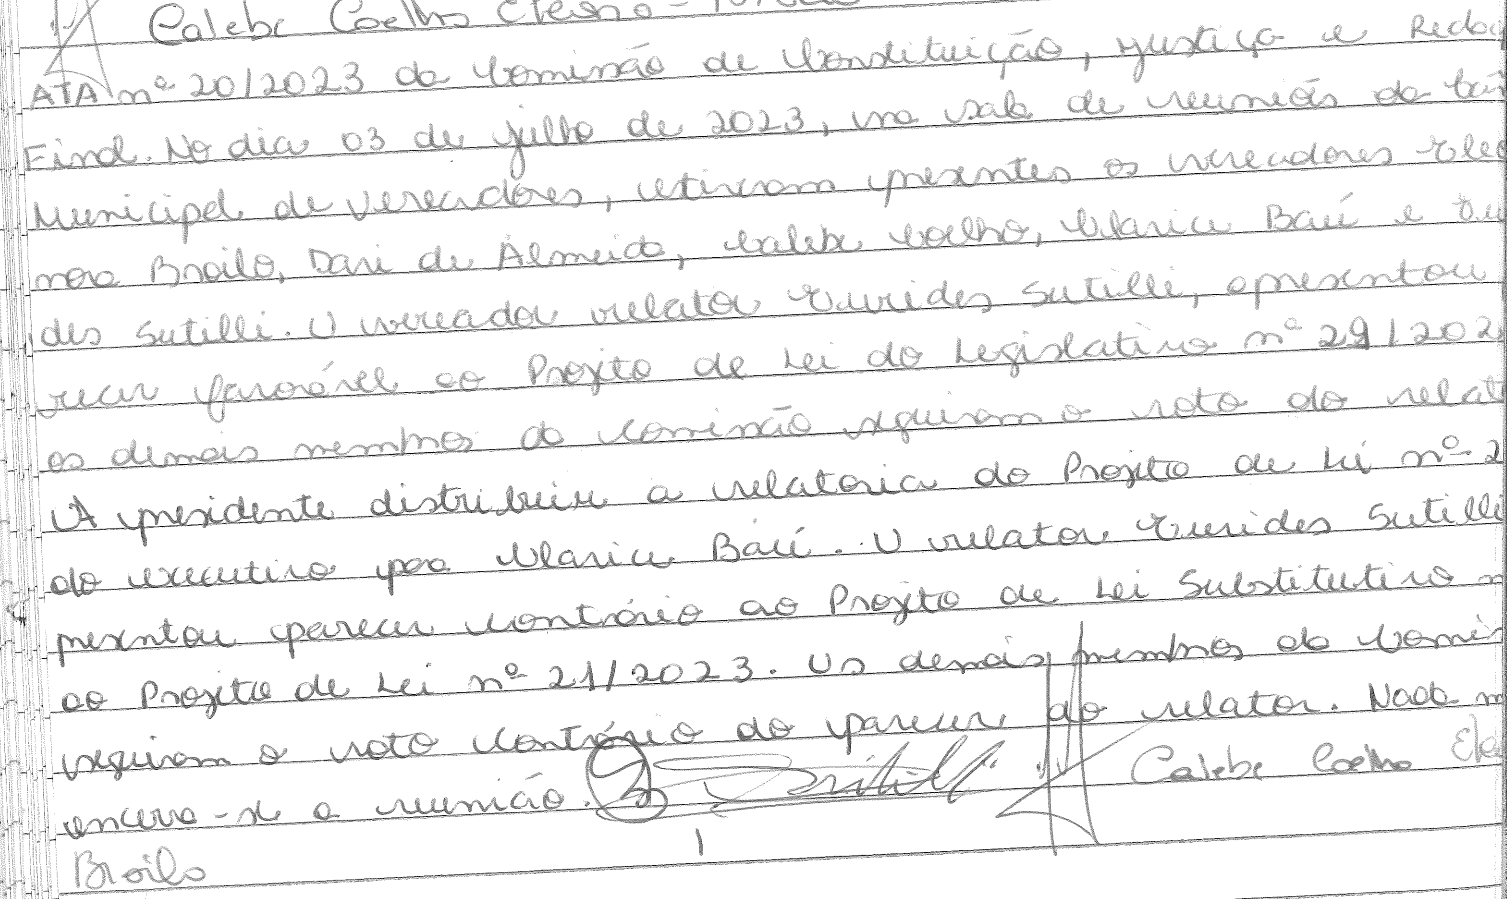 Calebe Coelho
ATA nº 20/2023 da Comissão de Constituição, Justiça e Redaç
Final. No dia 03 de julho de 2023, na sala de reuniões da Câm
Municipal de Vereadores, estiveram presentes os vereadores Eleo
nora Broilo, Davi de Almeida, Calebe Coelho, Clarice Baú e Eur
des Sutilli. O vereador relator Eurides Sutilli, apresentou
recer favorável ao Projeto de Lei do Legislativo nº 29/202
os demais membros da Comissão seguiram o voto do relat
A presidente distribuiu a relatoria do Projeto de Lei nº 2
do executivo para Clarice Baú. O relator Eurides Sutilli
presentou parecer contrário ao Projeto de Lei Substitutivo n
ao Projeto de Lei nº 21/2023. Os demais membros da Comis
seguiram o voto contrário do parecer do relator. Nada m
encerra-se a reunião.
Calebe Coelho Ele
Broilo